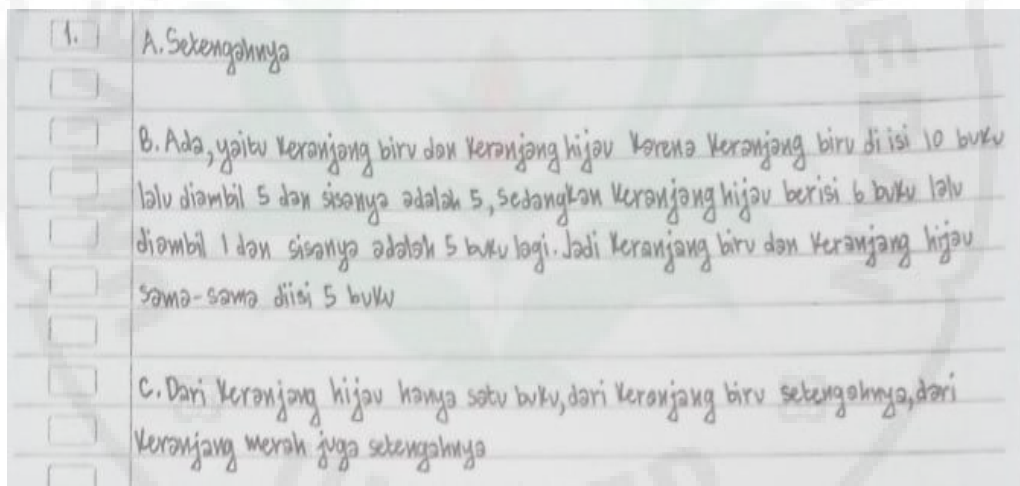 1. A. Setengahnya
B. Ada, yaitu keranjang biru dan keranjang hijau karena keranjang biru di isi 10 buku
lalu diambil 5 dan sisanya adalah 5, sedangkan keranjang hijau berisi 6 buku lalu
diambil 1 dan sisanya adalah 5 buku lagi. Jadi keranjang biru dan keranjang hijau
sama-sama diisi 5 buku
C. Dari keranjang hijau hanya satu buku, dari keranjang biru setengahnya, dari
keranjang merah juga setengahnya